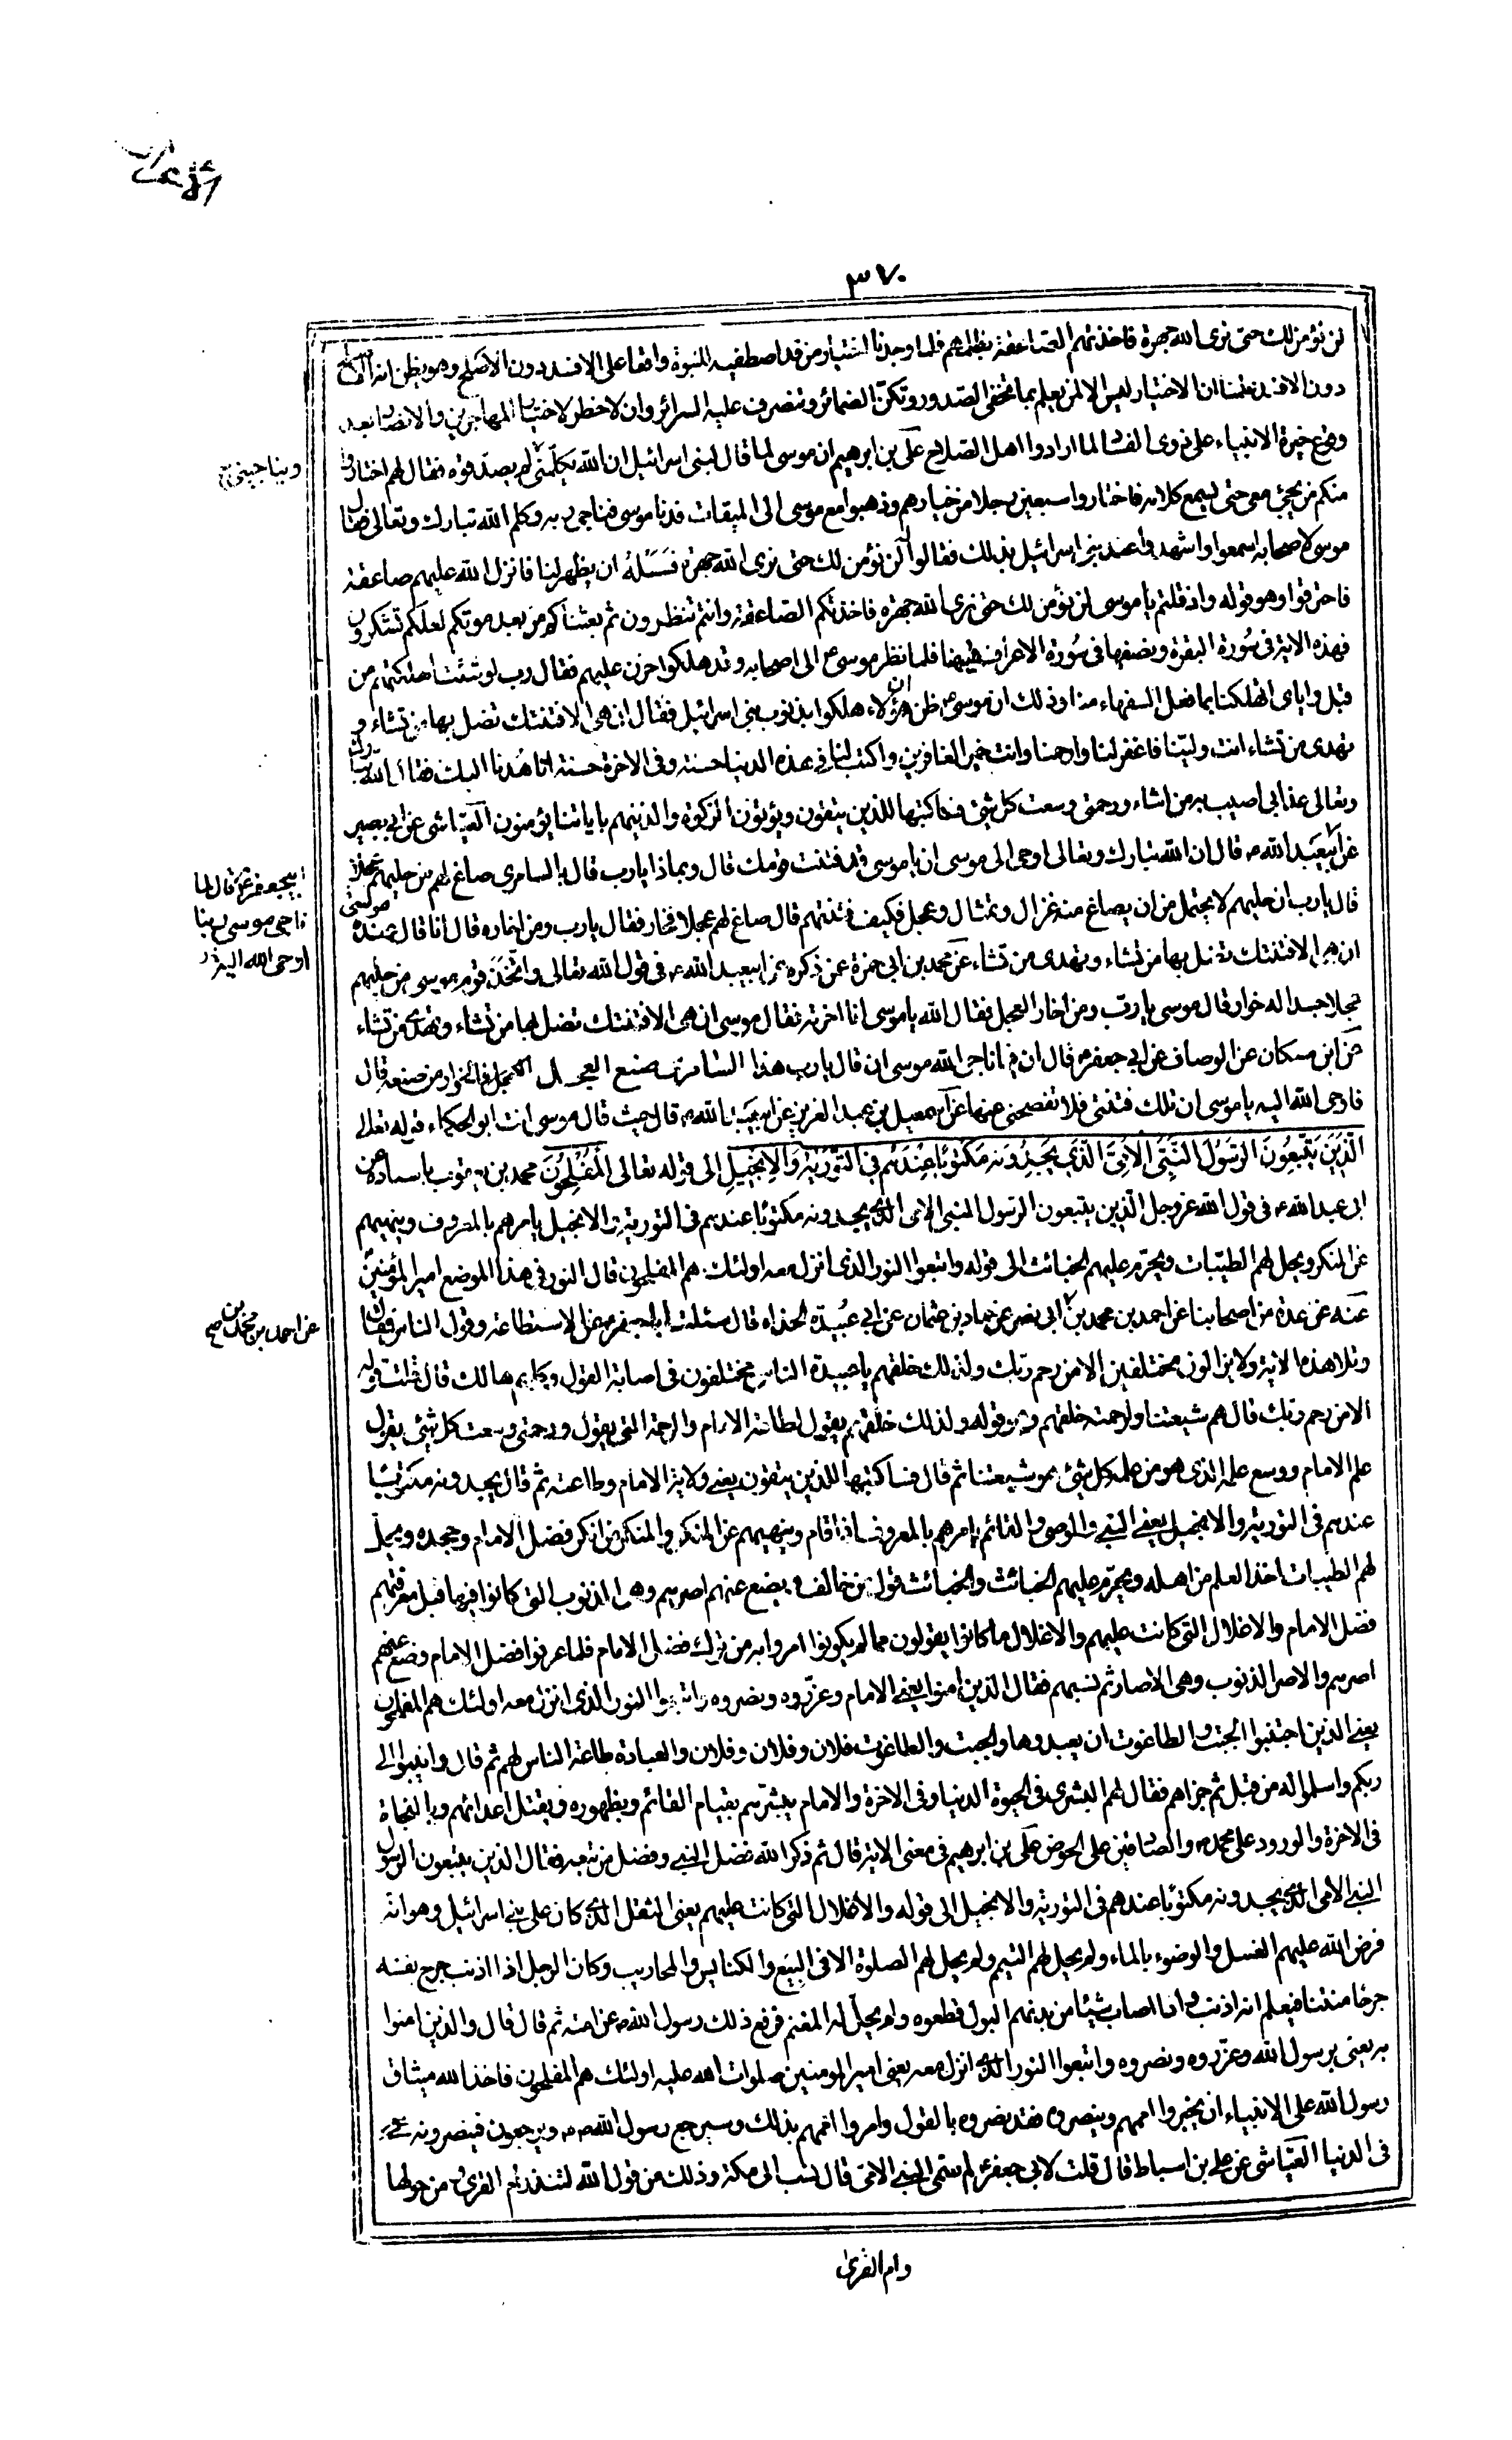 ٣٧٠
لن نؤمن لك حتى نرى الله جهرة فاخذتهم الصاعقة بظلمهم فلما وجدنا اختيار من قد اصطفيه للنبوة واقعا على الافسد دون الاصلح وهو يظن انه الاصلح
دون الافسد علمنا ان الاختيار ليس الا لمن يعلم بما تخفى الصدور وتكن الضمائر وتنصرف عليه السرائر وان لا خطر لاختيار المهاجرين والانصار بعد
وقوع خيرة الانبياء على ذوى الفساد لما ارادوا اهل الصلاح على بن ابرهيم ان موسى لما قال لبنى اسرائيل ان الله يكلمنى لم يصدقوه فقال لهم اختاروا
ويناجينى
منكم من يجئ معى حتى يسمع كلامه فاختاروا سبعين رجلا من خيارهم وذهبوا مع موسى الى الميقات فدنا موسى فناجى ربه وكلم الله تبارك وتعالى فقال
موسى لاصحابه اسمعوا واشهدوا عند بنى اسرائيل بذلك فقالوا لن نؤمن لك حتى نرى الله جهرة فسئله ان يظهر لنا فانزل الله عليهم صاعقة
فاحترقوا وهو قوله واذ قلتم يا موسى لن نؤمن لك حتى نرى الله جهرة فاخذتكم الصاعقة وانتم تنظرون ثم بعثناكم من بعد موتكم لعلكم تشكرون
فهذه الاية فى سورة البقرة ونصفها فى سورة الاعراف هيهنا فلما نظر موسى ع الى اصحابه وقد هلكوا حزن عليهم فقال رب لو شئت اهلكتهم من
قبل واياى اتهلكنا بما فعل السفهاء منا وذلك ان موسى ع ظن ان هؤلاء هلكوا بذنوب بنى اسرائيل فقال ان هى الا فتنتك تضل بها من تشاء و
تهدى من تشاء انت ولينا فاغفر لنا وارحمنا وانت خير الغافرين واكتب لنا فى هذه الدنيا حسنة وفى الاخرة حسنة انا هدنا اليك فقال الله تبارك
وتعالى عذابى اصيب به من اشاء ورحمتى وسعت كل شئ فساكتبها للذين يتقون ويؤتون الزكوة والذين هم باياتنا يؤمنون العياشى عن ابى بصير
عن ابيعبد الله ع قال ان الله تبارك وتعالى اوحى الى موسى ان يا موسى قد فتنت قومك قال وبماذا يارب قال بالسامرى صاغ لهم من حليهم عجلا
ابيجعفر ع قال لما
ناجى موسى ربه
اوحى الله اليه
قال يارب ان حليهم لا يحتمل من ان يصاغ منه غزال وتمثال وعجل فكيف فتنتهم قال صاغ لهم عجلا فخار فقال يارب ومن اخاره قال انا قال موسى عنده
ان هى الا فتنتك تضل بها من تشاء وتهدى من تشاء عن محمد بن ابى حمزة عن ذكره عن ابيعبد الله ع فى قول الله تعالى واتخذ قوم موسى من حليهم
عجلا جسدا له خوار قال موسى يا رب ومن اخار العجل فقال الله يا موسى انا اخرته فقال موسى ان هى الا فتنتك تضل بها من تشاء وتهدى من تشاء
عن ابن مسكان عن الوصاف عن ابى جعفر ع قال ان ناجى الله موسى ان قال يا رب هذا السامرى صنع العجل فالخوار من صنعه قال
فاوحى الله اليه يا موسى ان تلك فتنتى فلا تفصحنى عنها عن اسمعيل بن عبد العزيز عن ابيعبد الله ع قال حيث قال موسى انت ابو الحكماء قوله تعالى
الذين يتبعون الرسول النبى الامى الذى يجدونه مكتوبا عندهم فى التورية والانجيل الى قوله تعالى المفلحون محمد بن يعقوب باسناده عن
ابى عبد الله ع فى قول الله عز وجل الذين يتبعون الرسول النبى الامى الذى يجدونه مكتوبا عندهم فى التورية والانجيل يامرهم بالمعروف وينهيهم
عن المنكر ويحل لهم الطيبات ويحرم عليهم الخبائث الى قوله واتبعوا النور الذى انزل معه اولئك هم المفلحون قال النور فى هذا الموضع امير المؤمنين
عنه عن عدة من اصحابنا عن احمد بن محمد بن ابى نصر عن حماد بن عثمان عن ابى عبيدة الحذاء قال سئلت ابا جعفر ع عن الاستطاعة وقول الناس فقال
عن احمد بن محمد بن صح
وتلا هذه الاية ولا يزالون مختلفين الا من رحم ربك ولذلك خلقهم يا عبيدة الناس مختلفون فى اصابة القول وكلهم هالك قال قلت قوله
الا من رحم ربك قال هم شيعتنا ولرحمته خلقهم وهو قوله ولذلك خلقهم يقول لطاعة الامام والرحمة التى يقول ورحمتى وسعت كل شئ يقول
علم الامام ووسع علمه الذى هو من علمه كل شئ هو شيعتنا ثم قال فساكتبها للذين يتقون يعنى ولاية الامام وطاعته ثم قال يجدونه مكتوبا
عندهم فى التورية والانجيل يعنى النبى والوصى والقائم يامرهم بالمعروف اذا قام وينهيهم عن المنكر والمنكر من انكر فضل الامام وجحده ويحل
لهم الطيبات اخذ العلم من اهله ويحرم عليهم الخبائث والخبائث قول من خالف ويضع عنهم اصرهم وهى الذنوب التى كانوا فيها قبل معرفتهم
فضل الامام والاغلال التى كانت عليهم والاغلال ما كانوا يقولون مما لم يكونوا امروا به من ترك فضل الامام فلما عرفوا فضل الامام وضع عنهم
اصرهم والاصر الذنوب وهى الاصار ثم نسبهم فقال الذين امنوا يعنى الامام وعزروه ونصروه واتبعوا النور الذى انزل معه اولئك هم المفلحون
يعنى الذين اجتنبوا الجبت والطاغوت ان يعبدوها والجبت والطاغوت فلان وفلان وفلان والعبادة طاعة الناس لهم ثم قال وانيبوا الى
ربكم واسلموا له من قبل ثم جزاهم فقال لهم البشرى فى الحيوة الدنيا وفى الاخرة والامام يبشرهم بقيام القائم وبظهوره وبقتل اعدائهم وبالنجاة
فى الاخرة والورود على محمد ص والصادقين على الحوض على بن ابرهيم فى معنى الاية قال ثم ذكر الله فضل النبى وفضل من تبعه فقال الذين يتبعون الرسول
النبى الامى الذى يجدونه مكتوبا عندهم فى التورية والانجيل الى قوله والاغلال التى كانت عليهم يعنى الثقل الذى كان على بنى اسرائيل وهو انه
فرض الله عليهم الغسل والوضوء بالماء ولم يحل لهم التيمم ولم يحل لهم الصلوة الا فى البيع والكنايس والمحاريب وكان الرجل اذا اذنب جرح نفسه
جرحا منتنا فيعلم انه اذنب واذا اصاب شيئا من بدنهم البول قطعوه ولم يحل لهم المغنم فرفع ذلك رسول الله ص عن امته ثم قال قال والذين امنوا
به يعنى برسول الله وعزروه ونصروه واتبعوا النور الذى انزل معه يعنى امير المومنين صلوات الله عليه اولئك هم المفلحون فاخذ الله ميثاق
رسول الله على الانبياء ان يخبروا اممهم وينصروه فقد نصروه بالقول وامروا اممهم بذلك وسيرجع رسول الله ص ويرجعون فينصرونه
فى الدنيا العياشى عن على بن اسباط قال قلت لابى جعفر ع لم سمى النبى الامى قال نسب الى مكة وذلك من قول الله لتنذر ام القرى ومن حولها
وام القرى